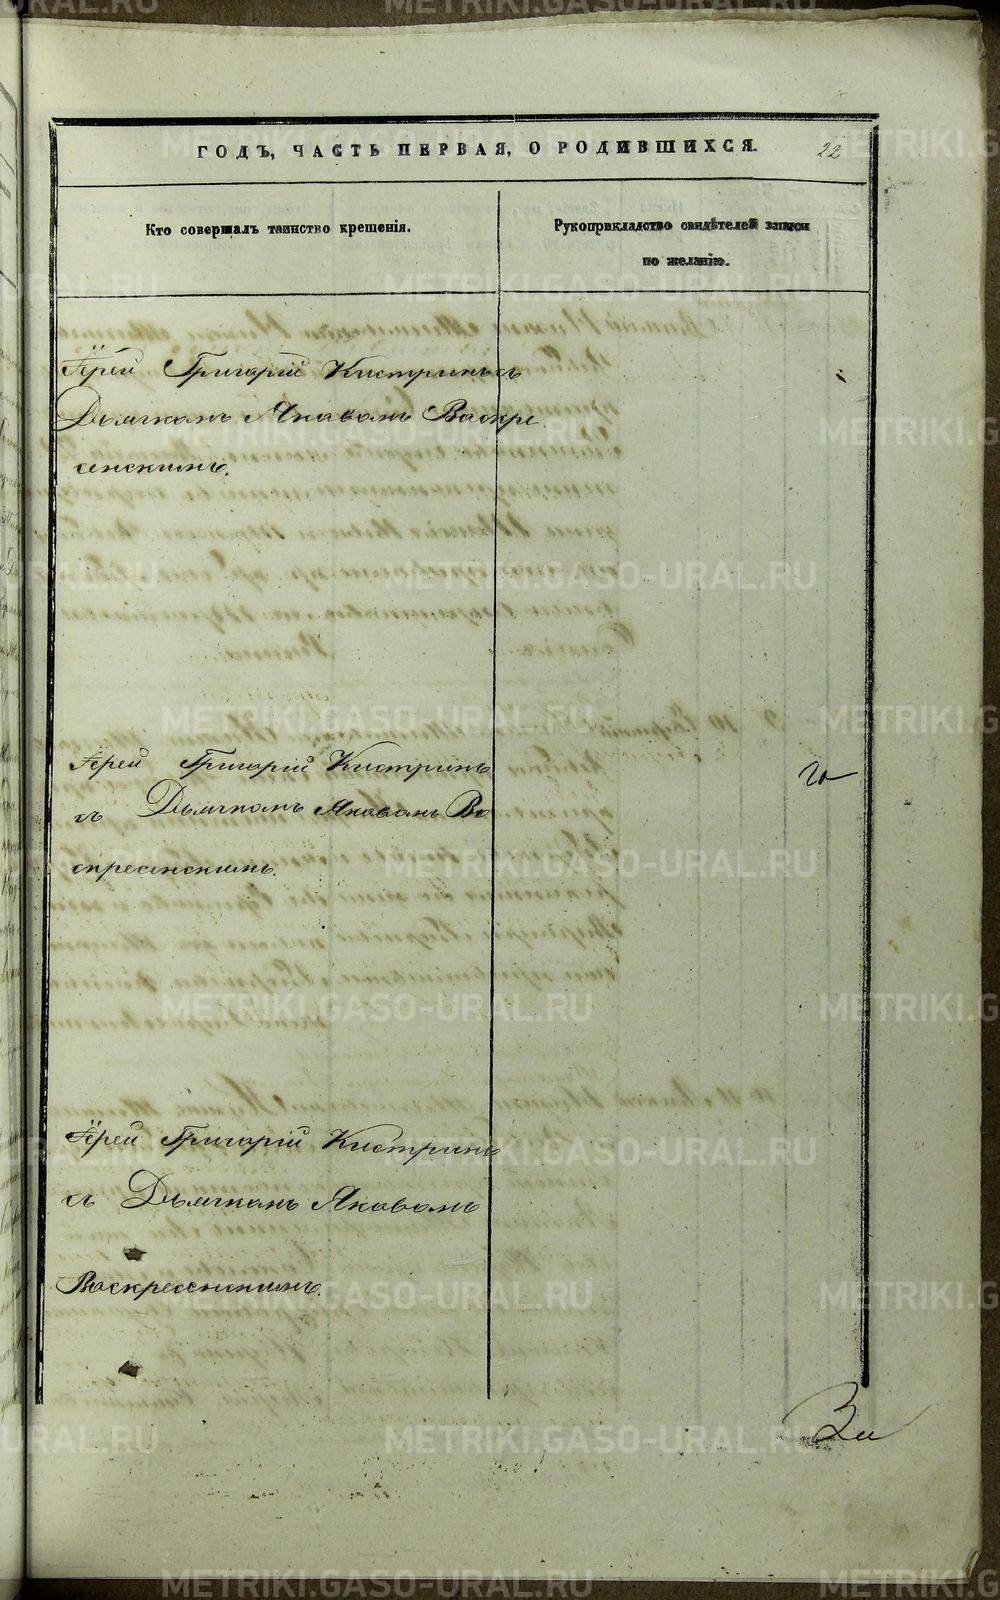 ГОДЪ, ЧАСТЬ ПЕРВАЯ, О РОДИВШИХСЯ. 22
Кто совершалъ таинство крещенія.
Рукоприкладство свидѣтелей записи
по желанію.
Іерей Григорій Кистринъ съ
Дьячкомъ Яковомъ Воскре
сенскимъ.
Іерей Григорій Кистринъ
съ Дьячкомъ Яковомъ Во
скресенскимъ.
Іерей Григорій Кистринъ
съ Дьячкомъ Яковомъ
Воскресенскимъ.
METRIKI.GASO-URAL.RU